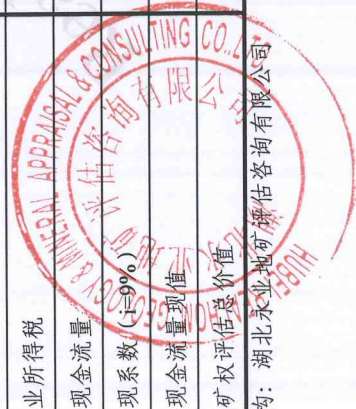 业所得税
现金流量
现系数(i=9%)
现金流量现值
矿权评估总价值
勾：湖北永业地矿评估咨询有限公司
GEOLOGY & MINERAL APPRAISAL & CONSULTING CO.,LTD
HUBEI
评估咨询有限公司